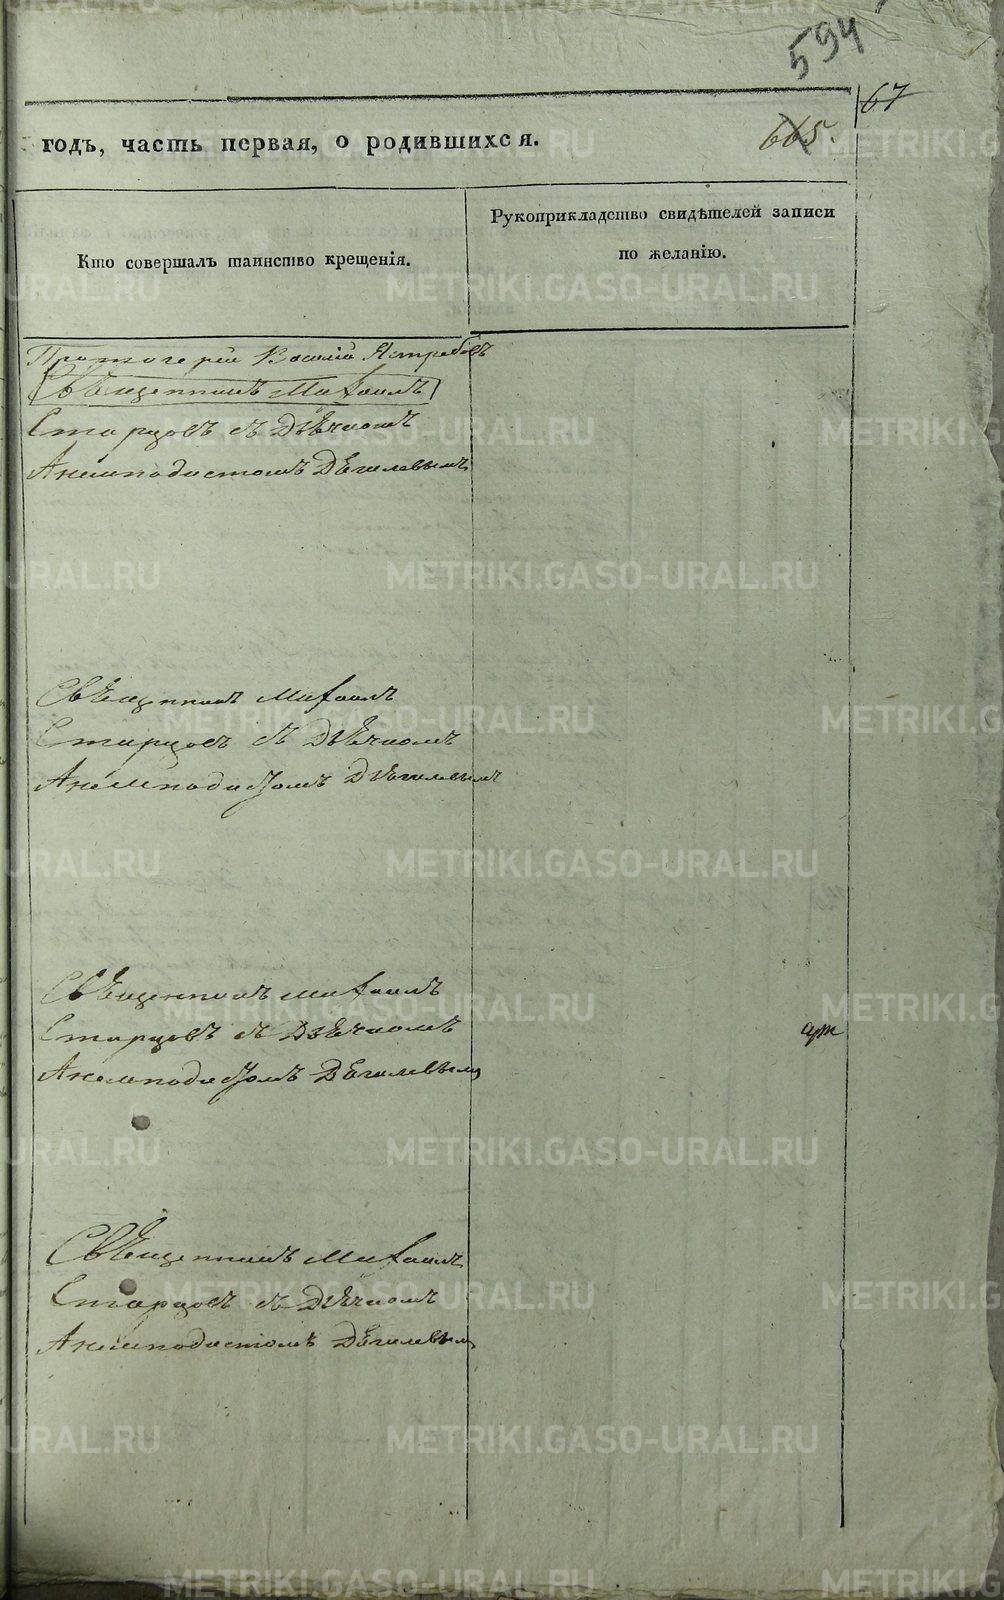 594
67
годъ, часть первая, о родившихся.
665.
Кто совершалъ таинство крещенія.
Рукоприкладство свидѣтелей записи
по желанію.
Протоіерей Василій Ястребовъ
Свѣщенникъ Михаилъ
Старцовъ съ Дьѣчкомъ
Анемподистомъ Дѣгилевымъ
Свѣщенникъ Михаилъ
Старцовъ съ Дьѣчкомъ
Анемподистомъ Дѣгилевымъ
Свѣщенникъ Михаилъ
Старцовъ съ Дьѣчкомъ
Анемподистомъ Дѣгилевымъ
Свѣщенникъ Михаилъ
Старцовъ съ Дьѣчкомъ
Анемподистомъ Дѣгилевымъ
METRIKI.GASO-URAL.RU